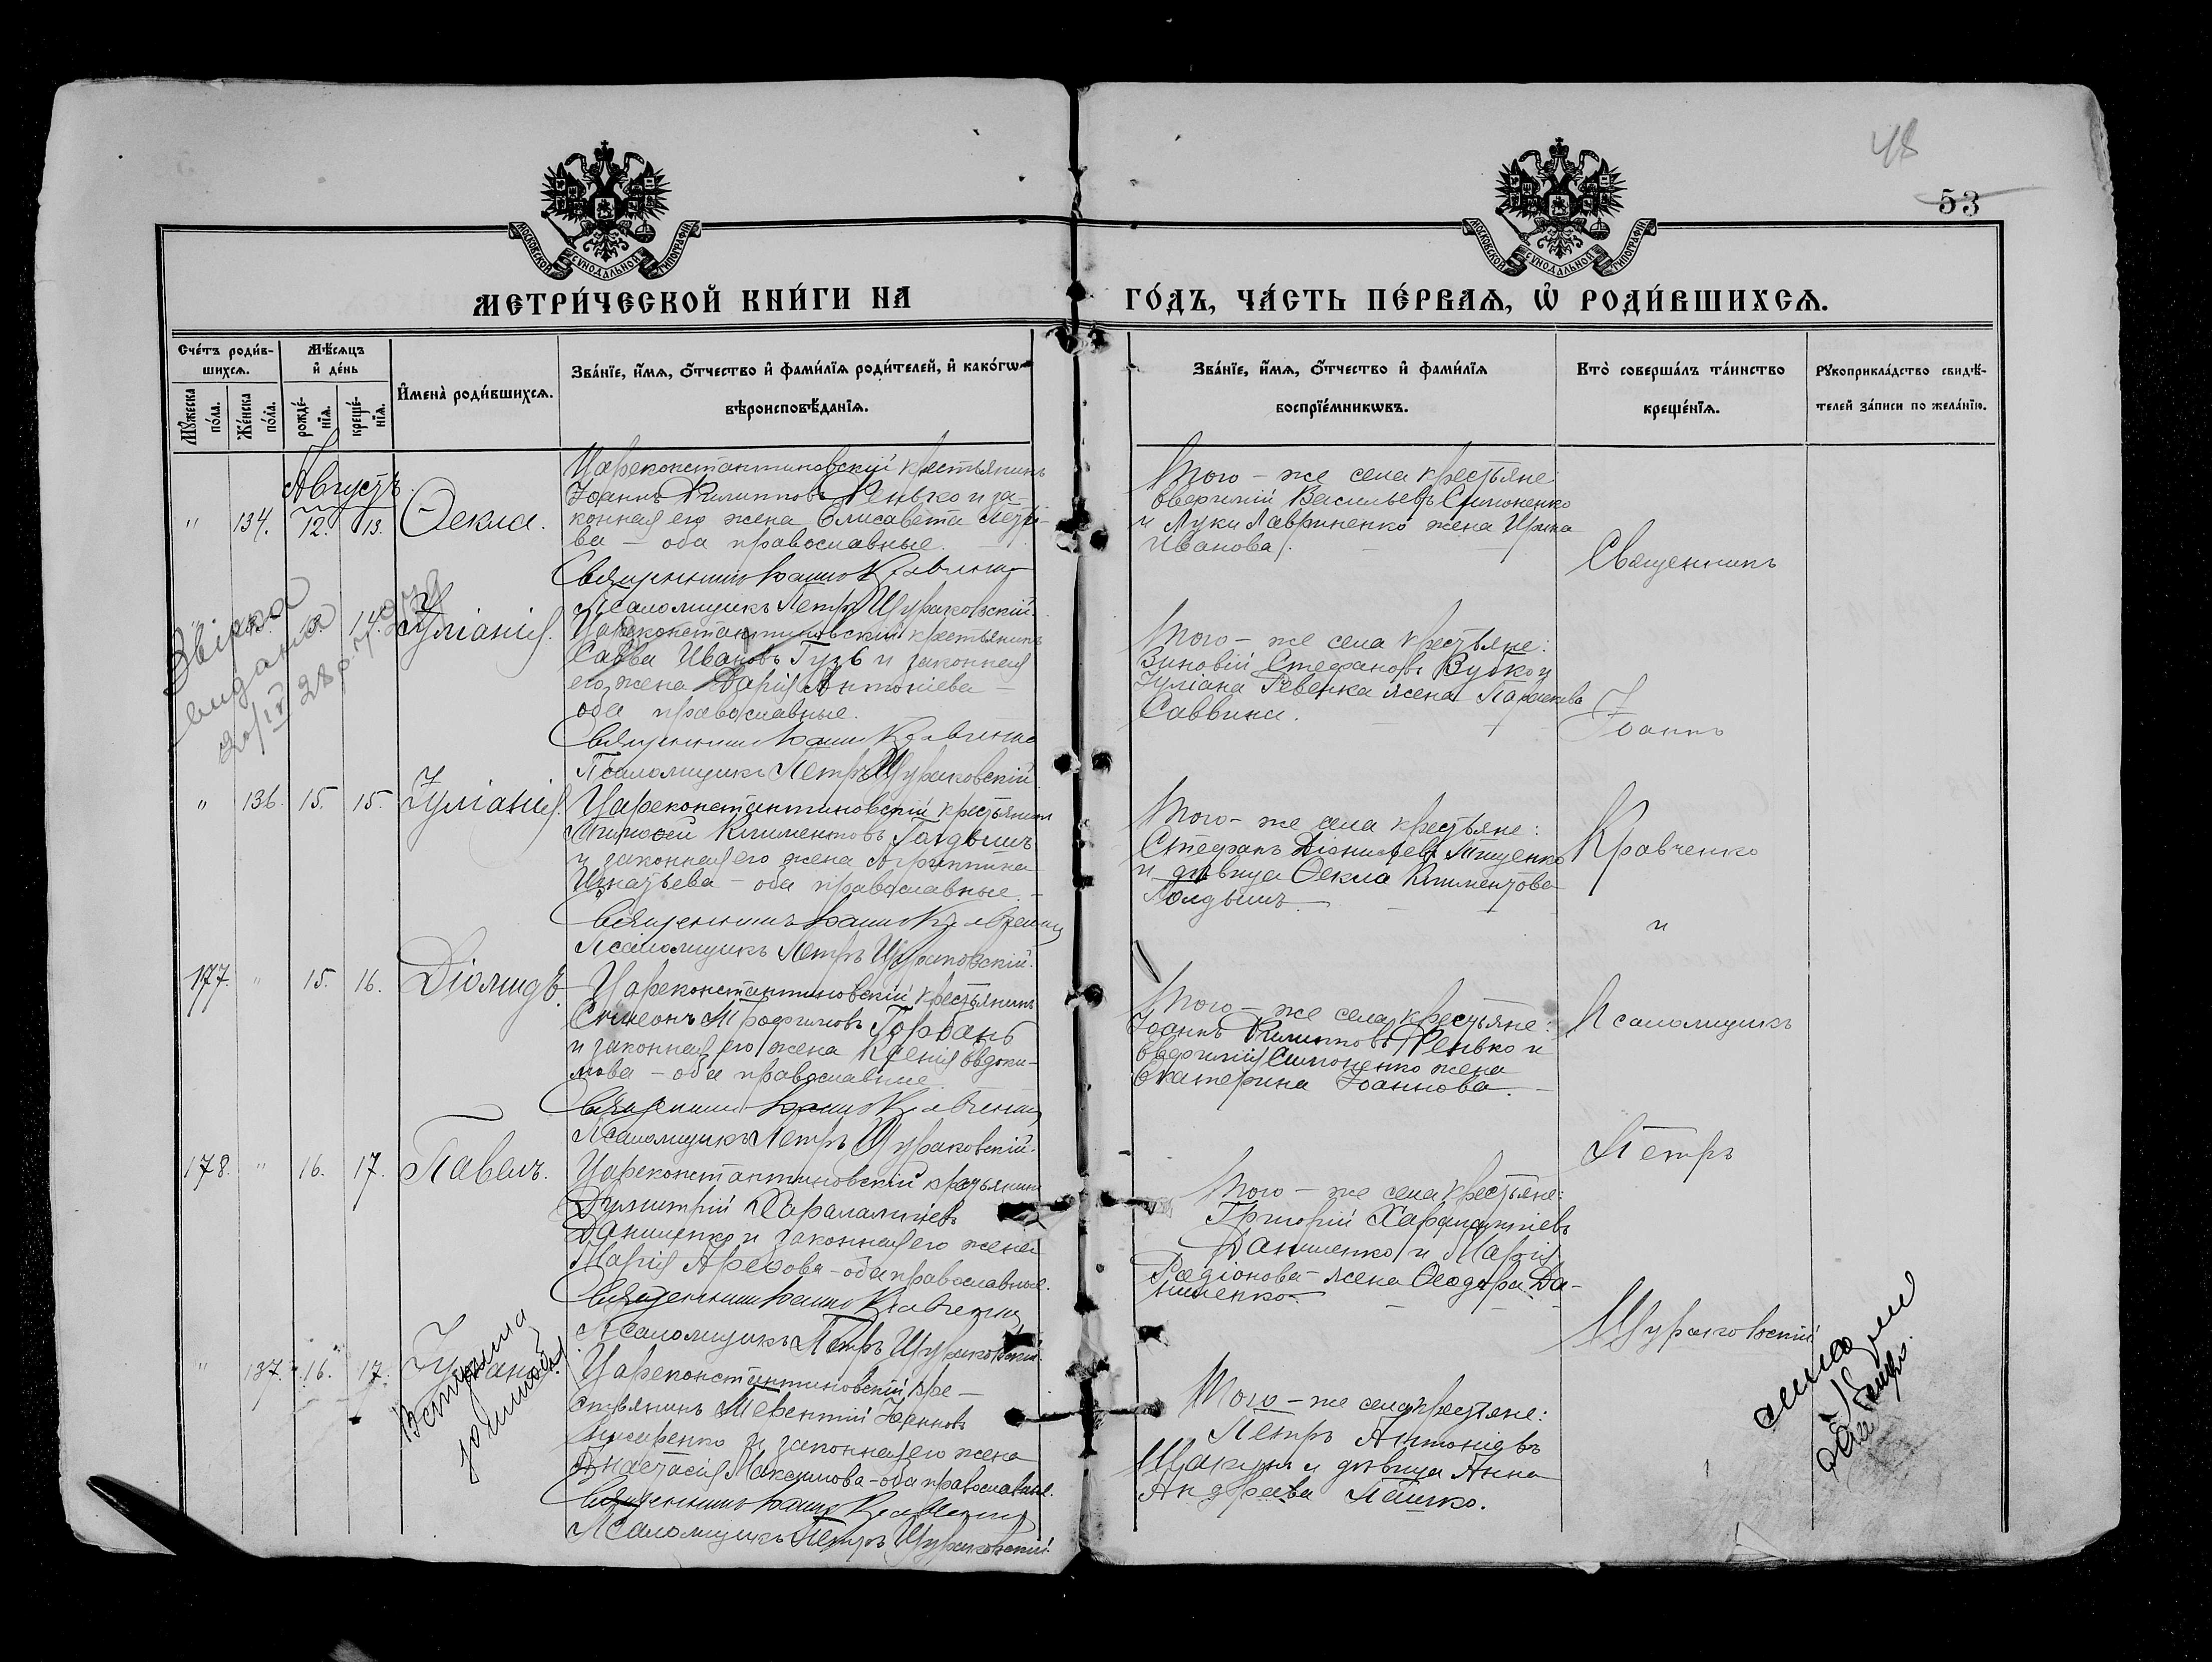 48
53
МОСКОВСКОЙ СѴНОДАЛЬНОЙ ТИПОГРАФІИ
МОСКОВСКОЙ СѴНОДАЛЬНОЙ ТИПОГРАФІИ
МЕТРИ́ЧЕСКОЙ КНИ́ГИ НА ГО́ДЪ, ЧА́СТЬ ПЕ́РВАѦ, Ѡ҆ РОДИ́ВШИХСѦ.
Сче́тъ роди́в-
шихсѧ.
Мꙋ́жеска по́ла.
Же́нска по́ла.
Мѣ́сѧцъ
и҆ де́нь
рожде́-нїѧ.
креще́-нїѧ.
И҆мена̀ роди́вшихсѧ.
Зва́нїе, и҆́мѧ, ѻ҆́тчество и҆ фами́лїѧ роди́телей, и҆ како́гѡ
вѣроисповѣ́данїѧ.
Зва́нїе, и҆́мѧ, ѻ҆́тчество и҆ фами́лїѧ
воспрїе́мникѡвъ.
Кто̀ соверша́лъ та́инство
креще́нїѧ.
Рꙋкоприкла́дство свидѣ́-
телей за́писи по жела́нїю.
Августъ
" 134. 12. 13. Ѳекла.
Цареконстантиновскій крестьянинъ
Іоаннъ Филипповъ Ренько и за-
конная его жена Елисавета
ва – оба православные.
Священникъ Іоаннъ Кравченко
Псаломщикъ Петръ Щураковскій.
Того – же села крестьяне
Евфимій Васильевъ Симоненко
и Луки Лавриненко жена Ирина
Иванова.
14. Іуліанія.
Цареконстантиновскій крестьянинъ
Савва Ивановъ Гузь и законная
его жена Дарія Антоніева –
оба православные.
Священникъ Іоаннъ Кравченко
Псаломщикъ Петръ Щураковскій
Того – же села крестьяне:
Зиновій Стефановъ Зубко и
Іуліана Ревенка жена Параскева
Саввина.
" 136. 15. 15. Іуліанія.
Цареконстантиновскій крестьянинъ
Тимофей Климентовъ Голдышъ
и законная его жена Агриппина
Игнатьева – оба православные.
Священникъ Іоаннъ Кравченко
Псаломщикъ Петръ Щураковскій.
Того – же села крестьяне:
Стефанъ Діонисіевъ Тищенко
и дѣвица Ѳекла Климентова
Голдышъ.
177. " 15. 16. Діомидъ.
Цареконстантиновскій крестьянинъ
Симеонъ Трофимовъ Горбань
и законная его жена Ксенія Евдоки-
мова – оба православные.
Священникъ Іоаннъ Кравченко
Псаломщикъ Петръ Щураковскій.
Того – же села крестьяне:
Іоаннъ Филипповъ Ренько и
Евфимій Симоненко жена
Екатерина Іоаннова.
178. " 16. 17. Павелъ.
Цареконстантиновскій крестьянинъ
Димитрій Харалампіевъ
Даниленко и законная его жена
Марія Арефова – оба православные.
Священникъ Іоаннъ Кравченко
Псаломщикъ Петръ Щураковскій.
Того – же села крестьяне:
Григорій Харалампіевъ
Даниленко и Марія
Родіонова – жена Ѳеодора Да-
ниленко.
" 137. 16. 17.
Цареконстантиновскій кре-
стьянинъ Терентій Іоанновъ
Писаренко и законная его жена
Анастасія Максимова – оба православные.
Священникъ Іоаннъ Кравченко
Псаломщикъ Петръ Щураковскій.
Того – же села крестьяне:
Петръ Антоніевъ
и дѣвица Анна
Андреева Пашко.
Священникъ
Іоаннъ
Кравченко
и
Псаломщикъ
Петръ
Щураковскій